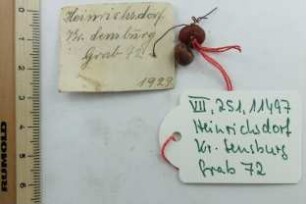 Heinrichsdorf
Kr. Lensburg
Grab 72
1929
VII, 251, 11497
Heinrichsdorf
Kr. Lensburg
Grab 72
RUMOLD
1
2
3
4
5
6